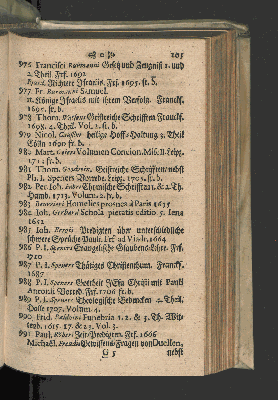 ❧ o ☙ 105
976 Francisci Gesetz und Zeugniß 1. und
2. Theil. Frf. 1692
Michters Israelis. Frf. 1695. st. b.
977 Fr. Samuel.
11. Könige Israelis mit ihrem Verfolg. Franckf.
1695. st. b.
978 Thom. Geistreiche Schrifften Franckf.
1698. 4. Theil. Vol. 2. st. b.
979 Nicol. heilige Hoff-Haltung 3. Theil
Cölln 1690 st. b.
980 Mart. Volumen Concion. MSS. II. Leipz.
1711. st. b.
981 Thom. Geistreiche Schrifften / nebst
Ph. J. Speners Vorrede. Leipz. 1705. st. b.
982 Pet. Joh. Chymische Schrifften 1. & 2. Th.
Hamb. 1713. Volum. 2. fr. b.
983 Homelies prononcé à Paris 1635
984 Joh. Gerhard Schola pietatis editio 5. Jena
1651
985 Joh. Predigten über unterschiedliche
schwere Sprüche Pauli. Frf. ad Viadr. 1664
986 P. J. Speners Evangelische Glaubens-Lehre. Frf.
910
987 P. J. Speners Thätiges Christenthum. Franckf.
1687
988 P. J. Speners Gottheit JEsu Christi mit Pauli
Antonii Vorred. Frf. 1706 fr. b.
989 P. J. Speners Theologische Bedencken 4. Theil.
Halle 1707. Volum. 4.
990 Frid. Balduini Funebria 1. 2. & 3. Th. Wit-
temb. 1615. 17. & 23. Vol. 3.
991 Paul. Röber Zeit-Predigten. Frf. 1666
Michael. Gewissens-Fragen von Duellen,
G 5 nebst